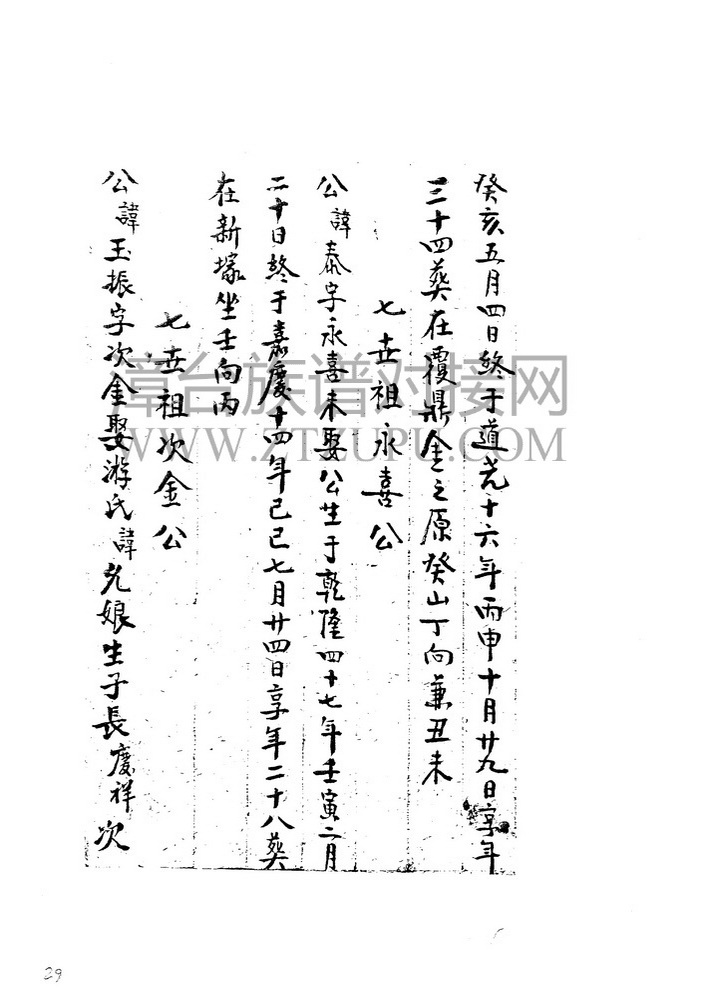 癸亥五月四日終于道光十六年丙申十月廿九日享年
三十四葬在覆鼎金之原癸山丁向兼丑未
七世祖永喜公
公諱泰字永喜未娶公生于乾隆四十七年壬寅二月
二十日終于嘉慶十四年己巳七月廿四日享年二十八葬
在新塚坐壬向丙
七世祖次金公
公諱玉振字次金娶游氏諱允娘生子長慶祥次
漳台族谱对接网
WWW.ZTZUPU.COM
29